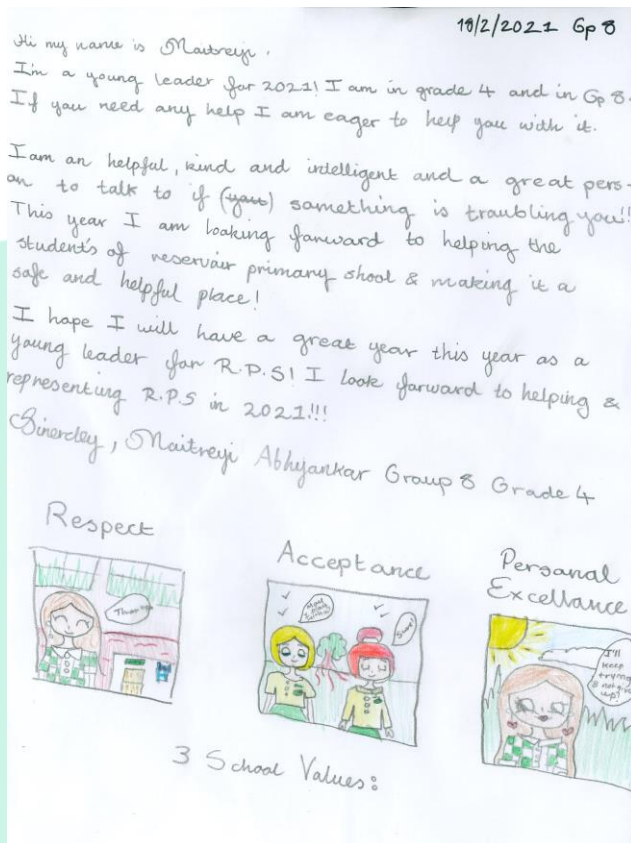 18/2/2021 Gp 8
Hi my name is Maitreyi.
I'm a young leader for 2021! I am in grade 4 and in Gp 8.
If you need any help I am eager to help you with it.
I am an helpful, kind and intelligent and a great pers-
on to talk to if (you) something is troubling you!!
This year I am looking forward to helping the
student's of reservoir primary shool & making it a
safe and helpful place!
I hope I will have a great year this year as a
young leader for R.P.S! I look forward to helping &
representing R.P.S in 2021!!!
Sinercley, Maitreyi Abhyankar Group 8 Grade 4
Respect
Acceptance
Personal
Excellance
Thank you
Sure!
I'll
keep
trying
& not give
up!
3 School Values: